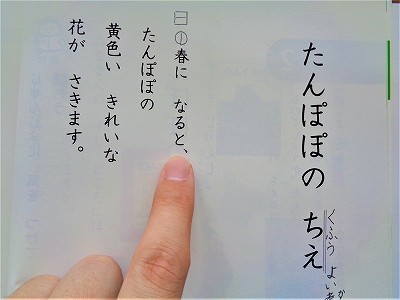 たんぽぽの ちえ
くふう よい
一 ①春に なると、
たんぽぽの
黄色い きれいな
花が さきます。